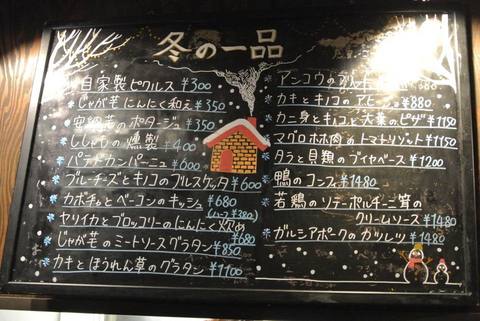 冬の一品
自家製ピクルス ¥300
じゃが芋にんにく和え ¥350
安納芋のポタージュ ¥350
ししゃもの燻製 ¥400
パテドカンパーニュ ¥600
ブルーチーズとキノコのブルスケッタ ¥600
カボチャとベーコンのキッシュ ¥680
(ハーフ ¥380)
ヤリイカとブロッコリーのにんにく炒め ¥680
じゃが芋のミートソースグラタン ¥850
カキとほうれん草のグラタン ¥1100
アンコウの
カキとキノコのアヒージョ ¥880
カニ身とキノコと大葉のピザ ¥1150
マグロホホ肉のトマトリゾット ¥1150
タラと貝類のブイヤベース ¥1200
鴨のコンフィ ¥1480
若鶏のソテーポルチーニ茸の
クリームソース ¥1480
ガルシアポークのカツレツ ¥1480